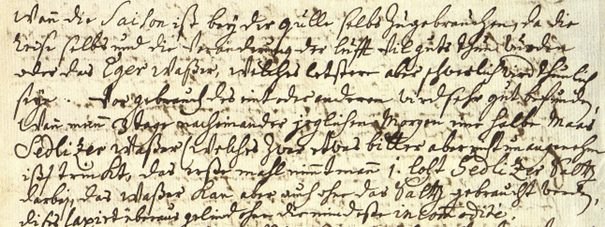 Wan die Saison ist beÿ der quelle selbs zugebrauchen, da die
reise selbs und die Veränderung der lufft vil guts thun würden
oder das Eger Waßer, welches letstere aber schwerlich wird thunlich
sein. Vor gebrauch des eint oder anderen wird sehr gut befunden
Wan man 3 tage nacheinander jeglichen Morgen eine halbe Maas
Sedlizer Waßer (welches zwar etwas bitter aber nicht unangenehm
ist) trinckt, das erste mahl nimmt man 1. loht Sedlizer Saltz
darbeÿ, das Waßer kan aber auch ohne das Saltz gebraucht werden,
dises laxirt überaus gelind ohne die mindeste incommodité.